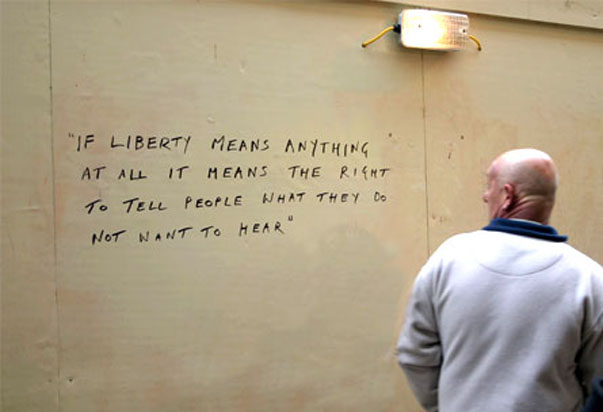 "IF LIBERTY MEANS ANYTHING
AT ALL IT MEANS THE RIGHT
TO TELL PEOPLE WHAT THEY DO
NOT WANT TO HEAR"